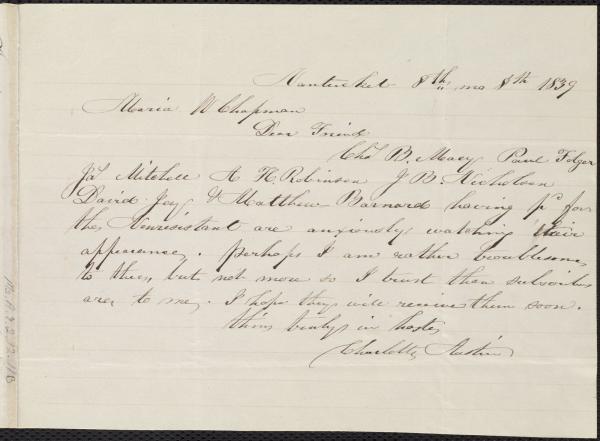 Nantucket 8th mo 8th 1839
Maria W Chapman
Dear Friend
Chas B. Macy Paul Folger
Jas Mitchell A H. Robinson J B. Nicholson
David Joy & Matthew Barnard having pd for
the Nonresistant are anxiously watching their
appearance. Perhaps I am rather troublesome
to thee, but not more so I trust than subscribers
are to me. I hope they will receive them soon.
thine truly in haste
Charlotte Austin